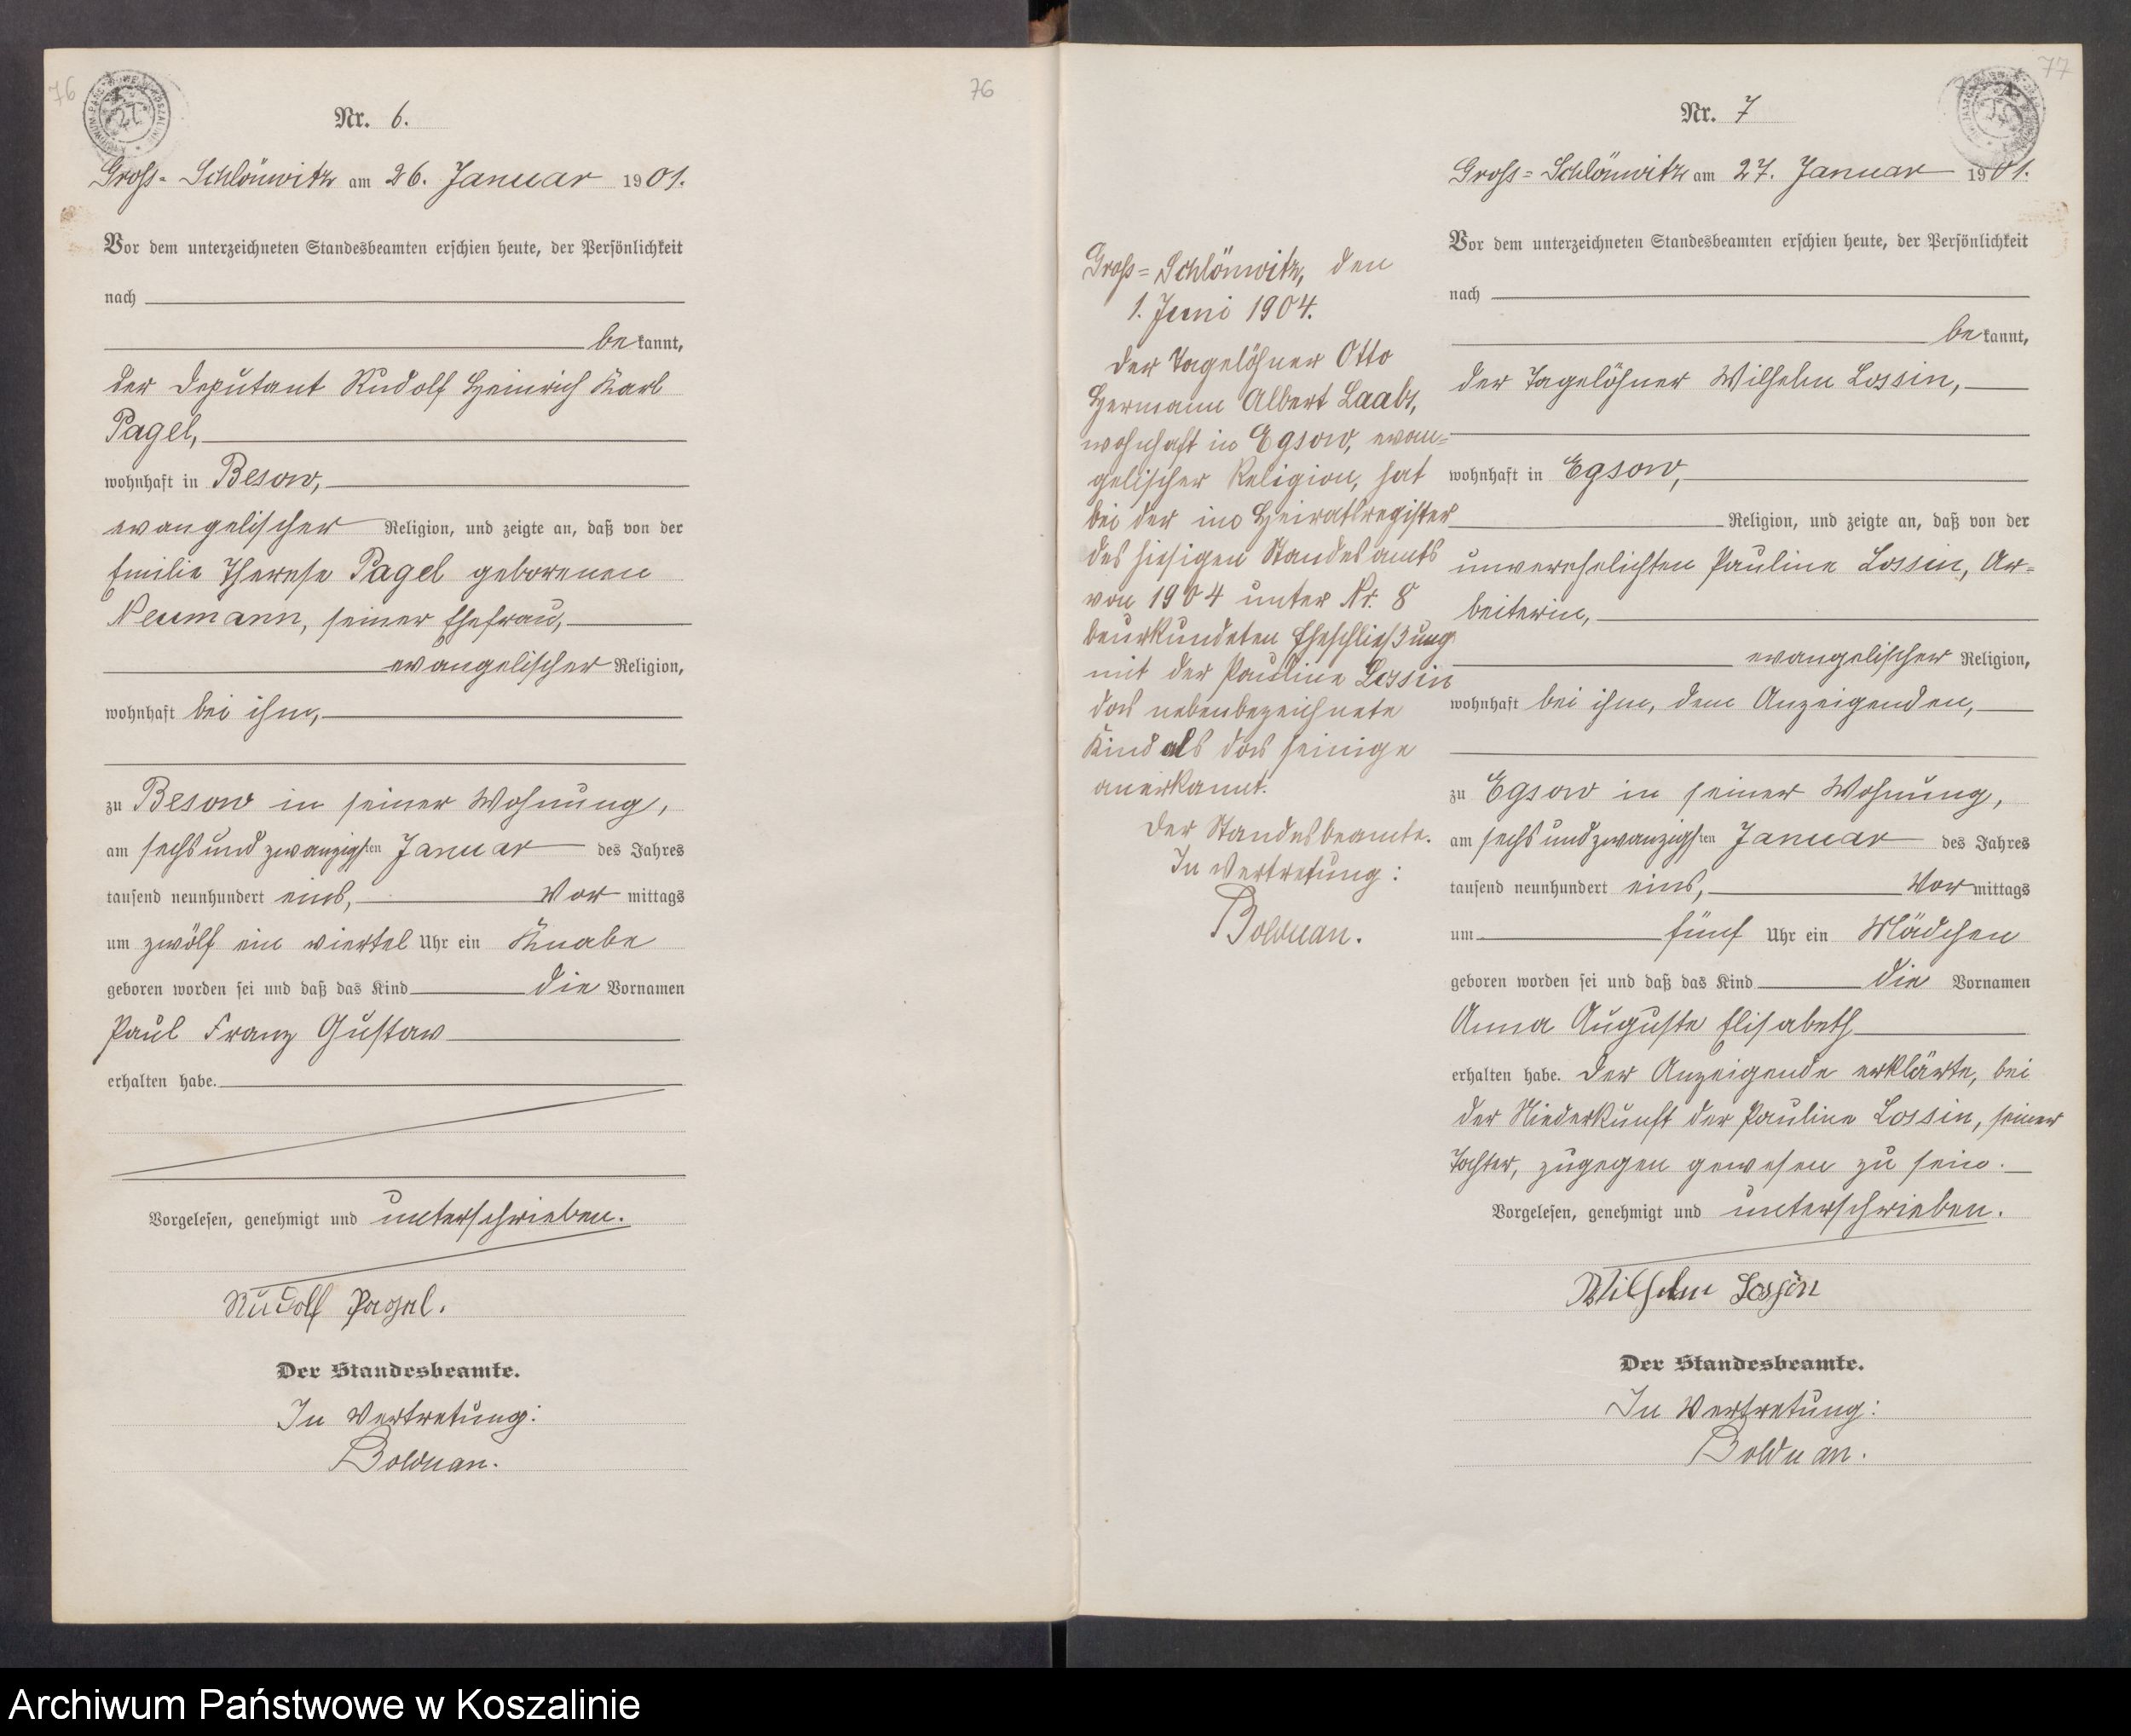 76
76
Nr. 6.
Gross-Schlönwitz am 26. Januar 1901.
Vor dem unterzeichneten Standesbeamten erschien heute, der Persönlichkeit
nach
bekannt,
der Deputant Rudolf Heinrich Karl
Pagel,
wohnhaft in Besow,
evangelischer Religion, und zeigte an, daß von der
Emilie Therese Pagel geborenen
Neumann, seiner Ehefrau,
evangelischer Religion,
wohnhaft bei ihm,
zu Besow in seiner Wohnung,
am sechsundzwanzigsten Januar des Jahres
tausend neunhundert eins, Vormittags
um zwölf ein viertel Uhr ein Knabe
geboren worden sei und daß das Kind die Vornamen
Paul Franz Gustav
erhalten habe.
Vorgelesen, genehmigt und unterschrieben.
Rudolf Pagel.
Der Standesbeamte.
In Vertretung:
Bolduan.
Gross=Schlönwitz, den
1. Juni 1904.
Der Tagelöhner Otto
Hermann Albert Laabs,
wohnhaft in Egsow, evan=
gelischer Religion, hat
bei der im Heiratsregister
des hiesigen Standesamts
von 1904 unter Nr. 8
beurkundeten Eheschließung
mit der Pauline Lossin
das nebenbezeichnete
Kind als das seinige
anerkannt.
Der Standesbeamte.
In Vertretung:
Bolduan.
77
Nr. 7
Gross=Schlönwitz am 27. Januar 1901.
Vor dem unterzeichneten Standesbeamten erschien heute, der Persönlichkeit
nach
bekannt,
der Tagelöhner Wilhelm Lossin,
wohnhaft in Egsow,
Religion, und zeigte an, daß von der
unverehelichten Pauline Lossin, Ar=
beiterin,
evangelischer Religion,
wohnhaft bei ihm, dem Anzeigenden,
zu Egsow in seiner Wohnung,
am sechsundzwanzigsten Januar des Jahres
tausend neunhundert eins, Vormittags
um fünf Uhr ein Mädchen
geboren worden sei und daß das Kind die Vornamen
Anna Auguste Elisabeth
erhalten habe. Der Anzeigende erklärte, bei
der Niederkunft der Pauline Lossin, seiner
Tochter, zugegen gewesen zu sein.
Vorgelesen, genehmigt und unterschrieben.
Wilhelm Lossin
Der Standesbeamte.
In Vertretung:
Bolduan.
Archiwum Państwowe w Koszalinie